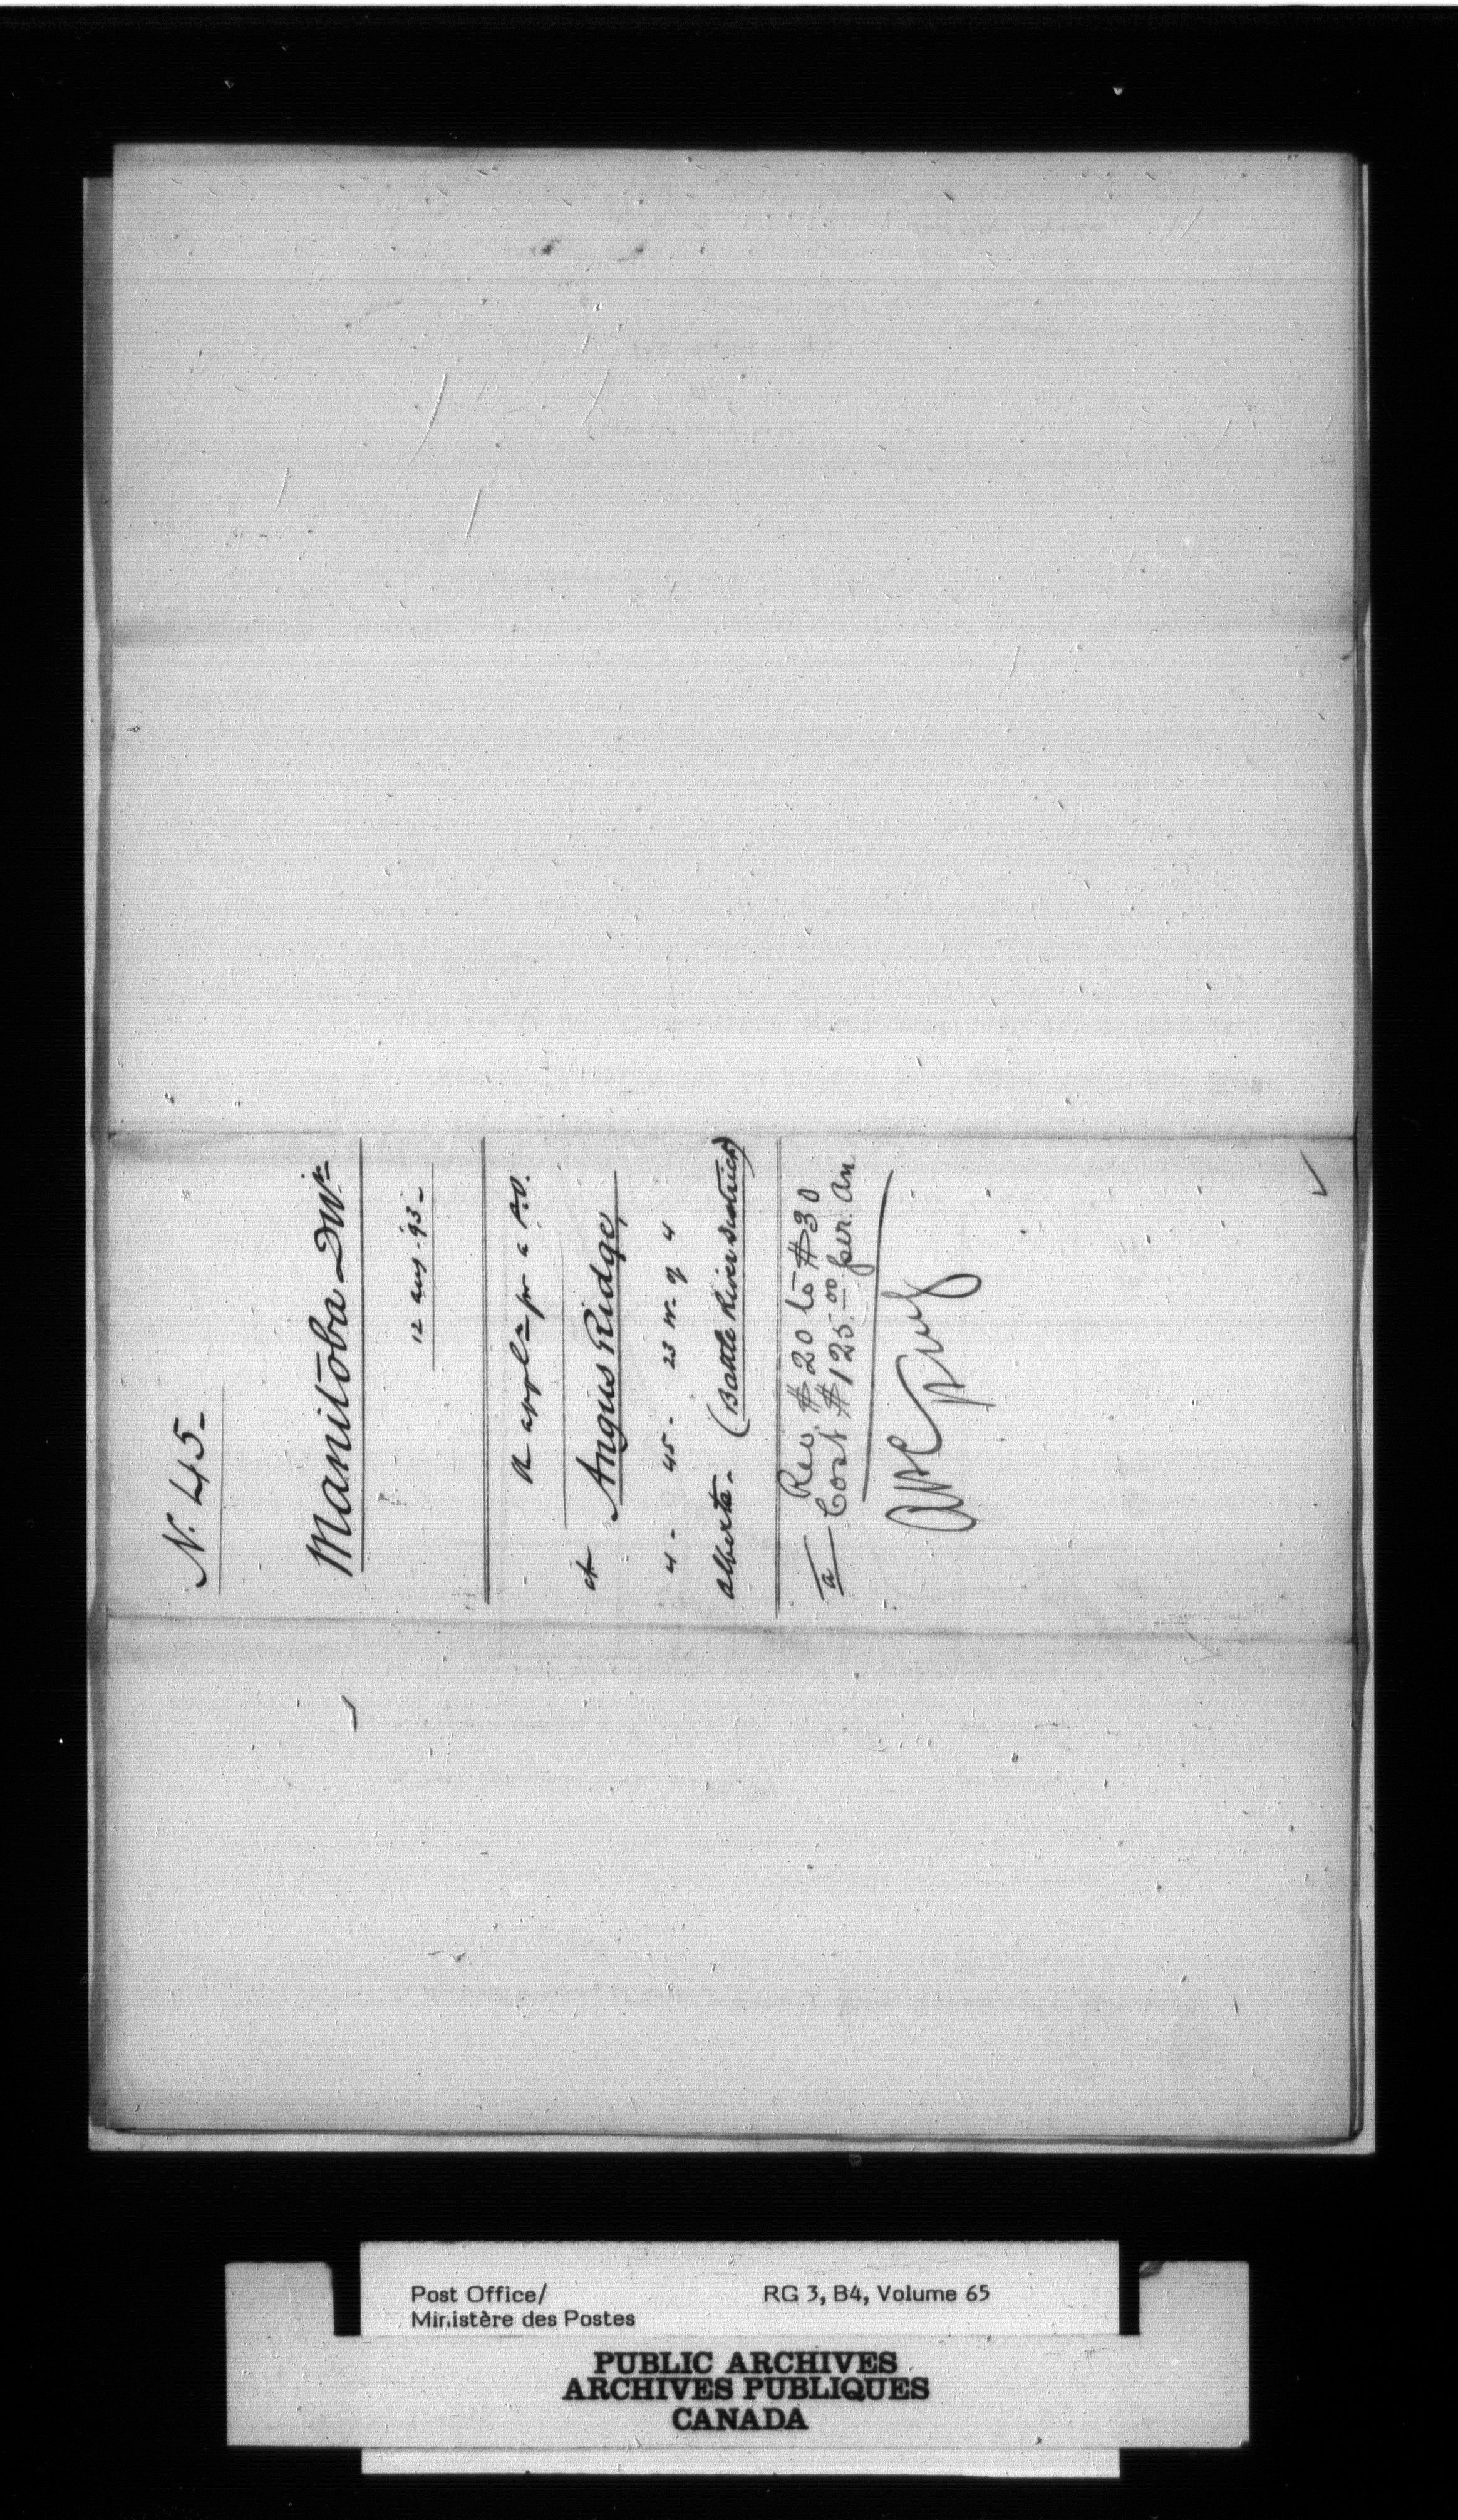 N. 45-
Manitoba Dn
12 aug. 93-
R appln for a P.O.
at Angus Ridge,
4 - 45 - 23 W. of 4
Alberta - (Battle River District)
Rev. $20 to $30
a Cost $125.00 per. an
Post Office/
Ministère des Postes
RG 3, B4, Volume 65
PUBLIC ARCHIVES
ARCHIVES PUBLIQUES
CANADA